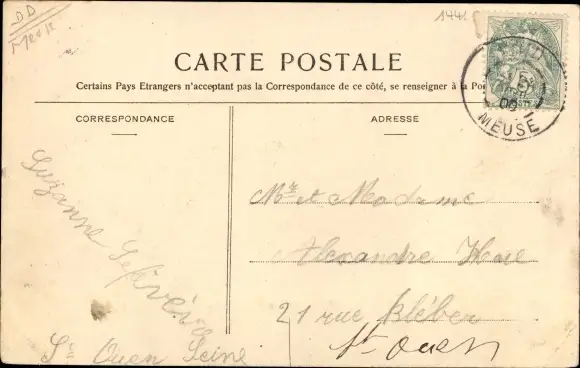 DD
144
CARTE POSTALE
Certains Pays Etrangers n'acceptent pas la Correspondance de ce côté, se renseigner à la Po
CORRESPONDANCE
ADRESSE
MEUSE
Suzanne Lefèvère
St Ouen Seine
Mr et Madame
Alexandre
21 rue Kléber
St Ouen